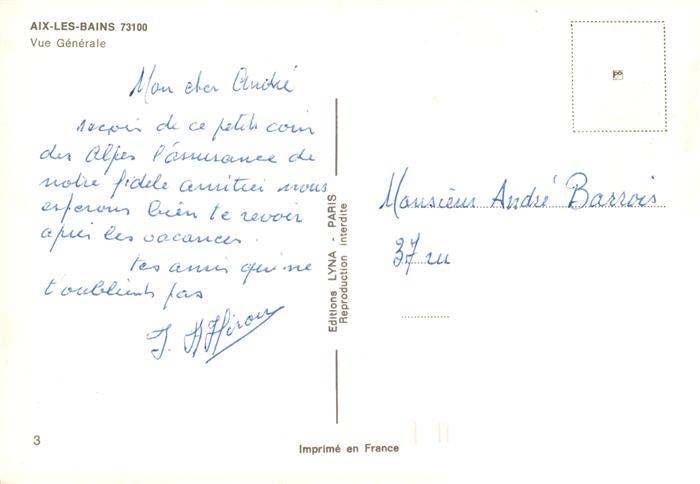 AIX-LES-BAINS 73100
Vue Générale
Mon cher André
reçois de ce petit coin
des Alpes l'assurance de
notre fidèle amitiée nous
esperons bien te revoir
après les vacances.
tes amis qui ne
t'oublient pas
Editions LYNA - PARIS
Reproduction interdite
Monsieur André Barrois
37 ru
3
Imprimé en France